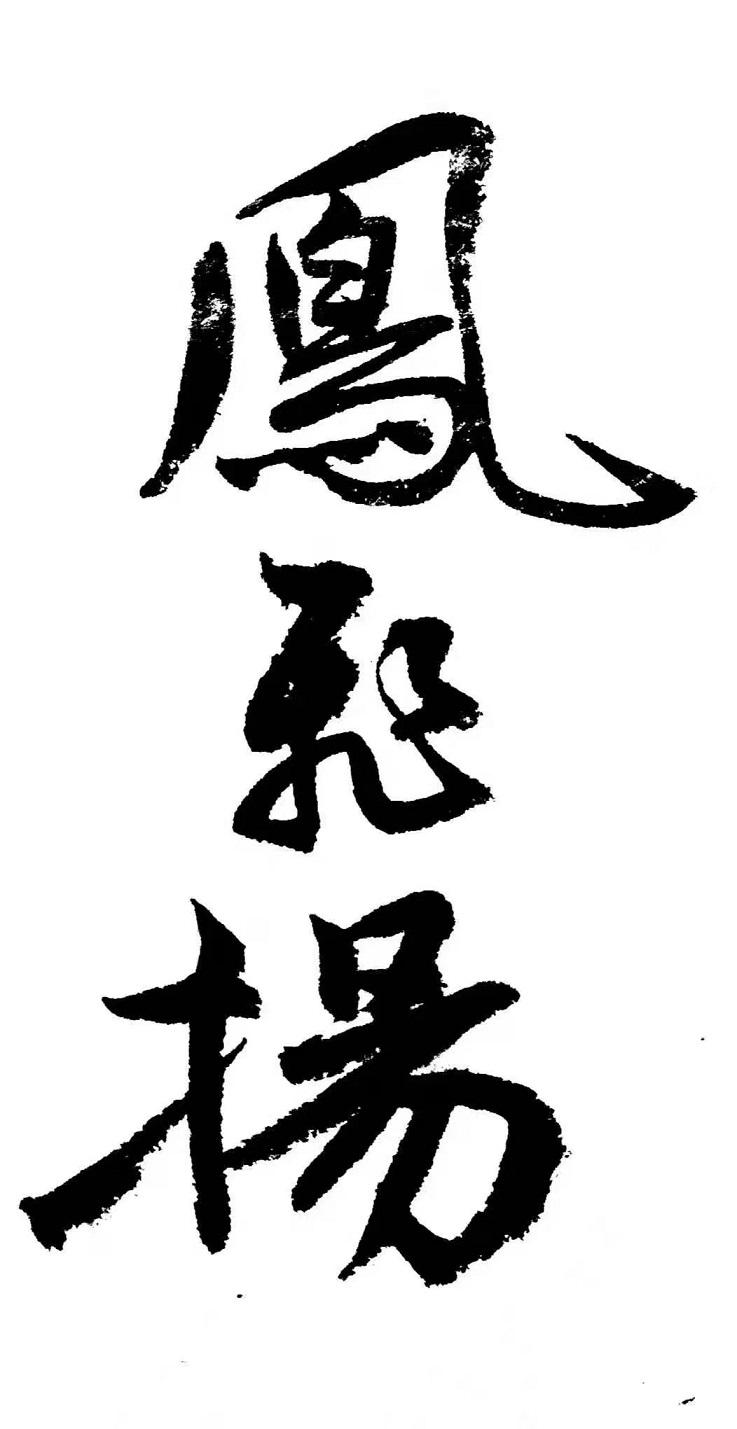 鳳飛揚